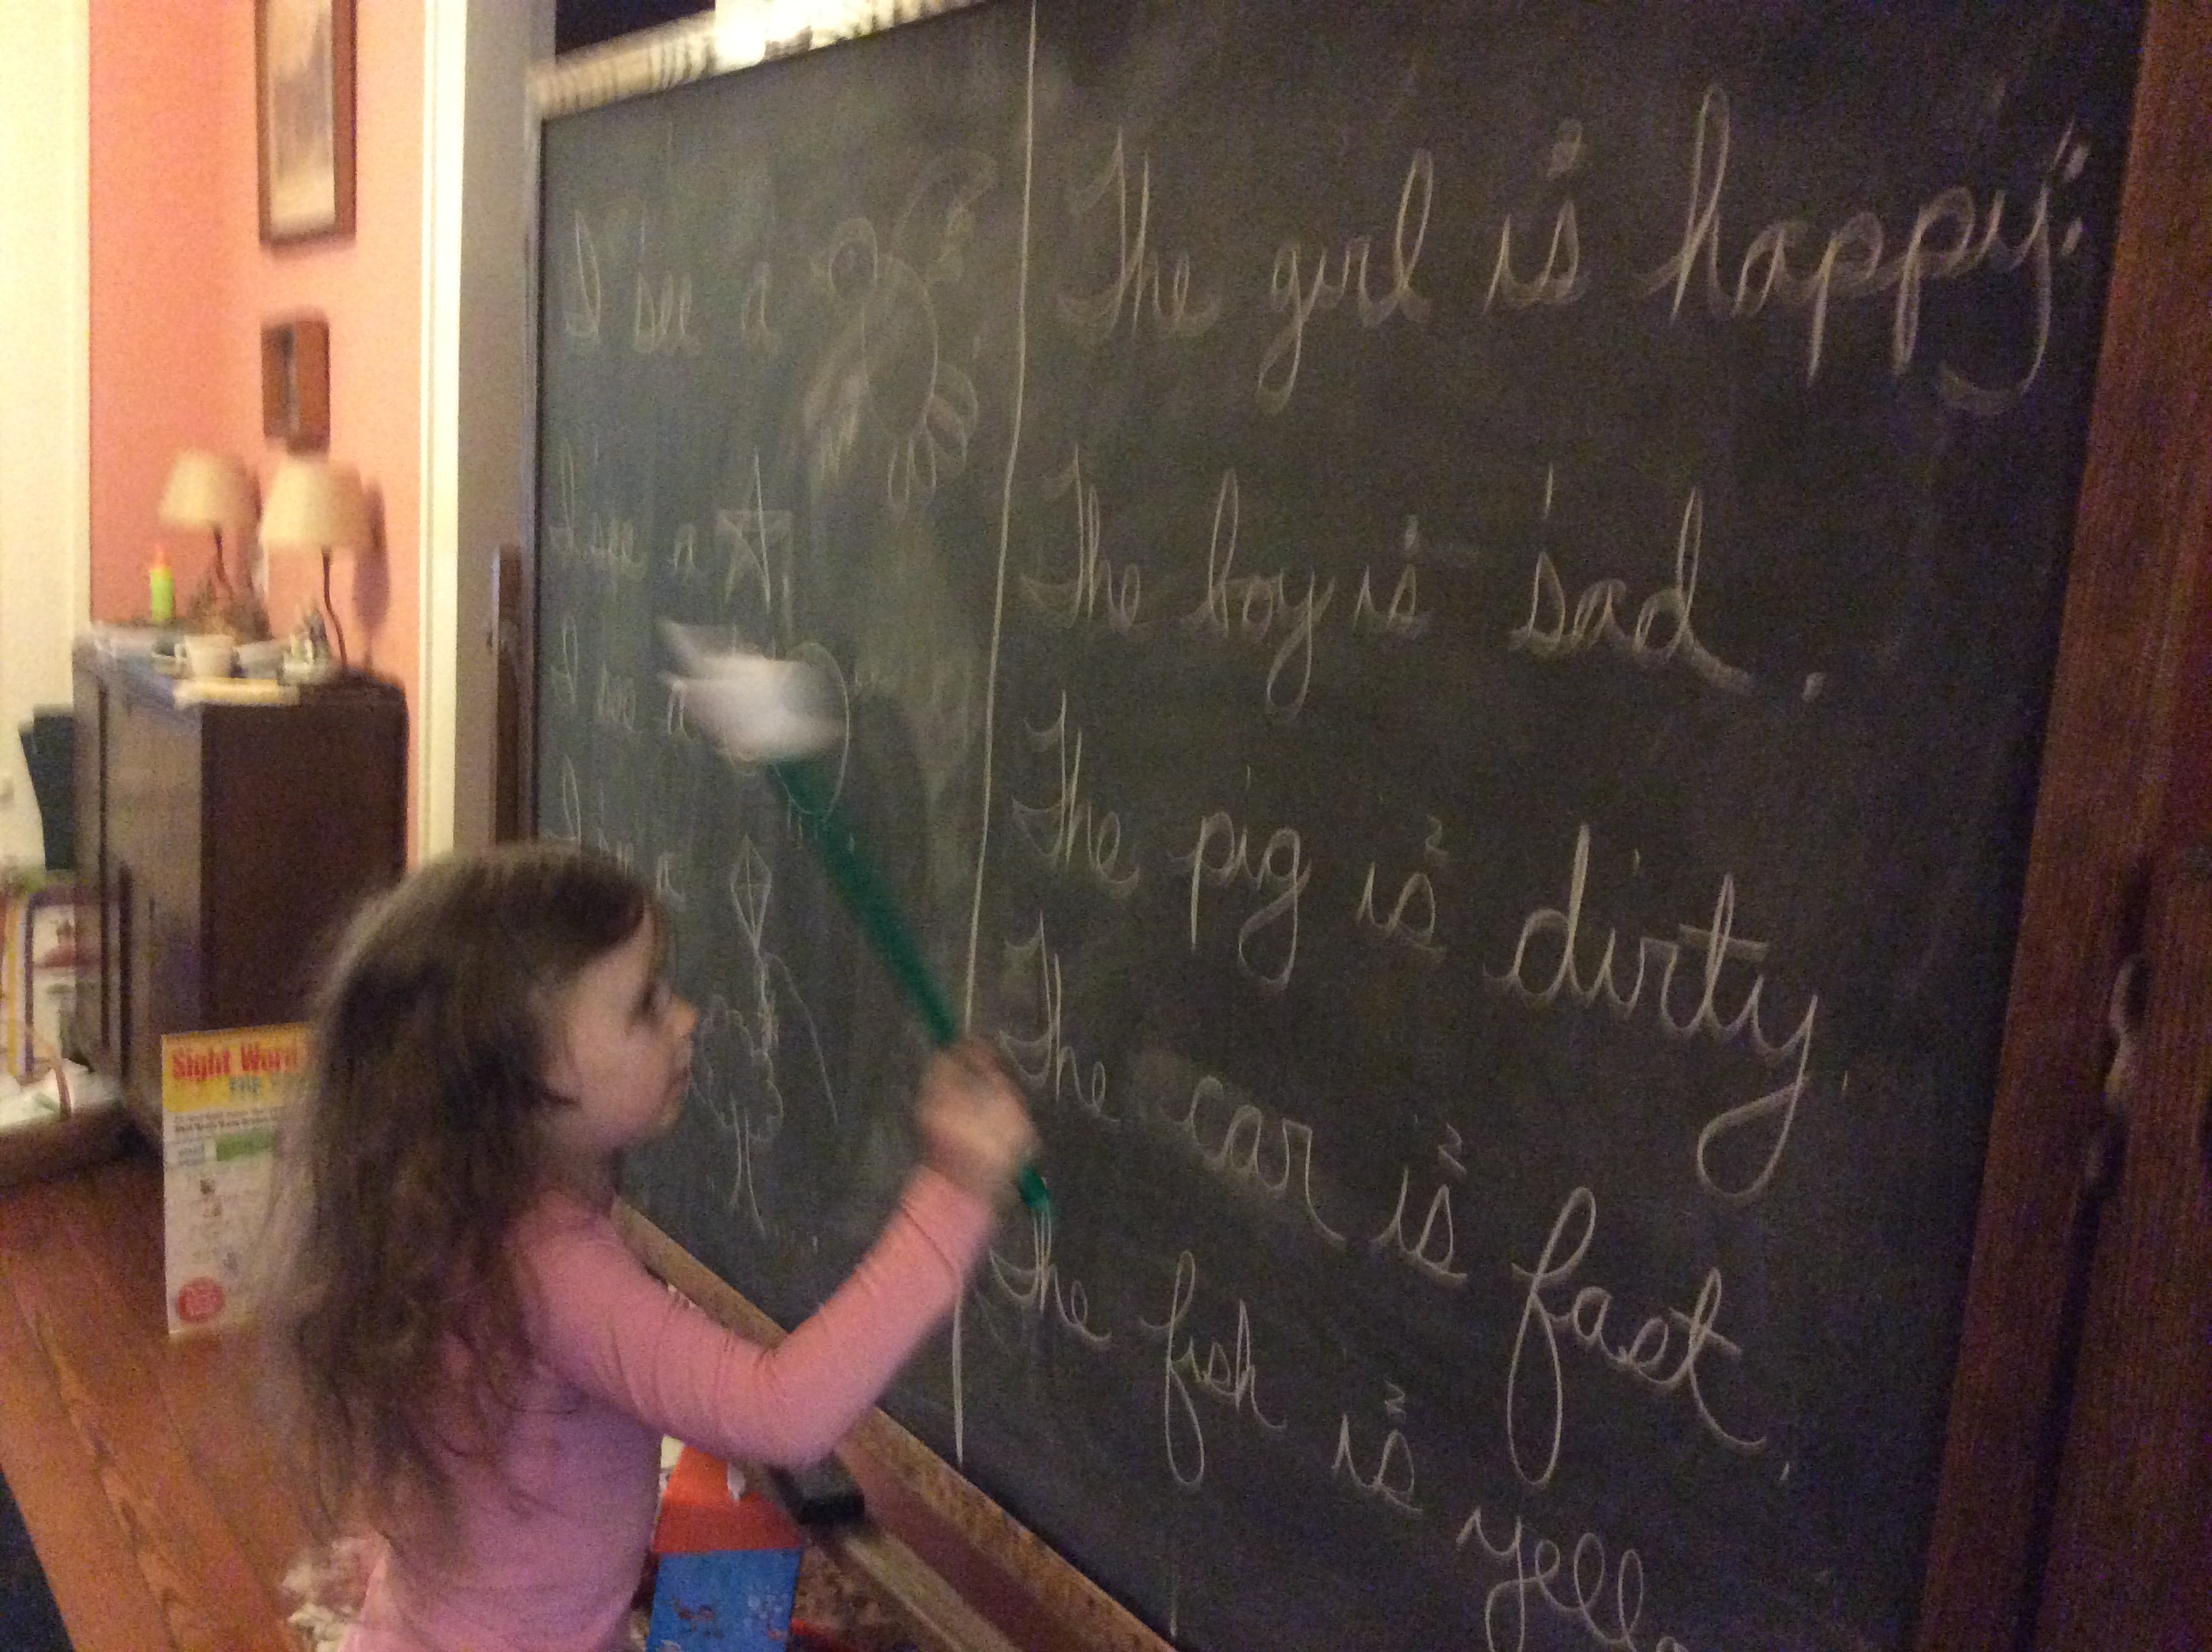 I see a
I see a
I see a
a
The girl is happy.
The boy is sad.
The pig is dirty.
The car is fast.
The fish is
Sight Word